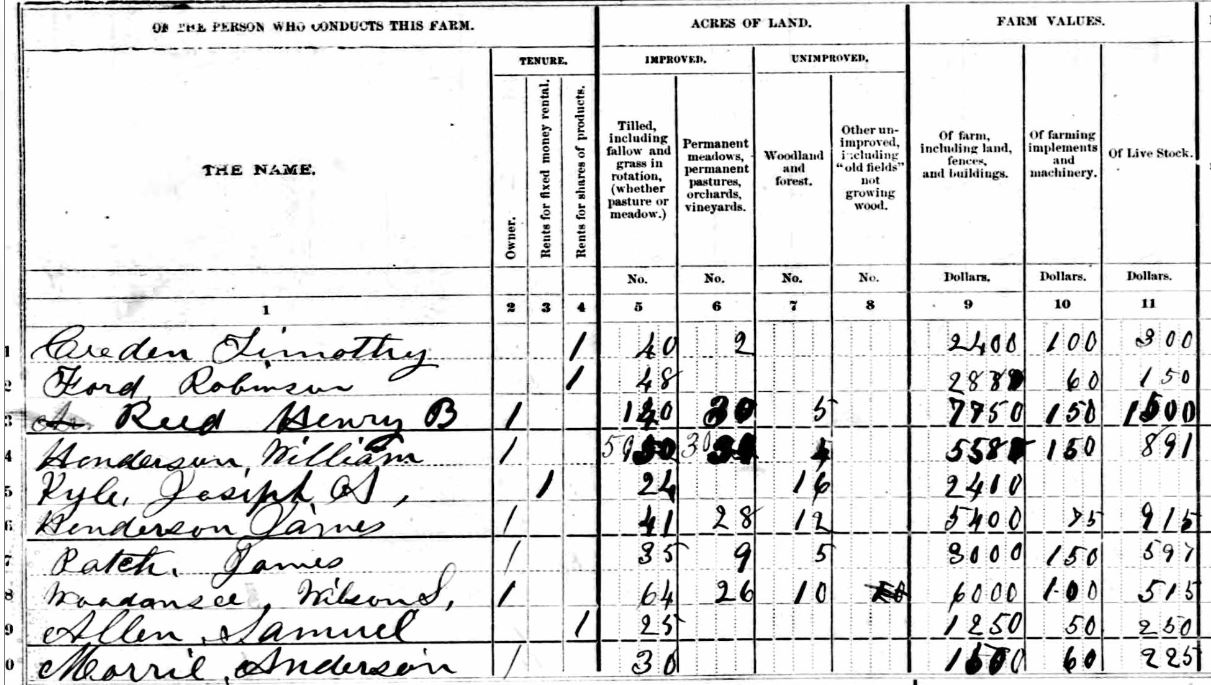 OF THE PERSON WHO CONDUCTS THIS FARM. ACRES OF LAND. FARM VALUES.
TENURE. IMPROVED. UNIMPROVED.
THE NAME.
Owner.
Rents for fixed money rental.
Rents for shares of products.
Tilled, including fallow and grass in rotation, (whether pasture or meadow.)
Permanent meadows, permanent pastures, orchards, vineyards.
Woodland and forest.
Other unimproved, including "old fields" not growing wood.
Of farm, including land, fences, and buildings.
Of farming implements and machinery.
Of Live Stock.
No. No. No. No. Dollars. Dollars. Dollars.
1 2 3 4 5 6 7 8 9 10 11
1 Creden Timothy 1 40 2 2400 100 300
2 Ford, Robinson 1 48 2880 60 150
3 Reed Henry B 1 120 30 5 7750 150 1500
4 Henderson, William 1 50 30 4 5580 150 891
5 Kyle, Joseph A, 1 24 16 2400
6 Henderson James 1 41 28 12 5400 75 915
7 Patch, James 1 35 9 5 3000 150 597
8 Woodansee, Wilson S, 1 64 26 10 6000 100 515
9 Allen, Samuel 1 25 1250 50 250
0 Morril, Anderson 1 30 1500 60 225